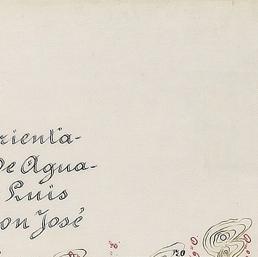 rienta-
De Agua-
Luis
on José